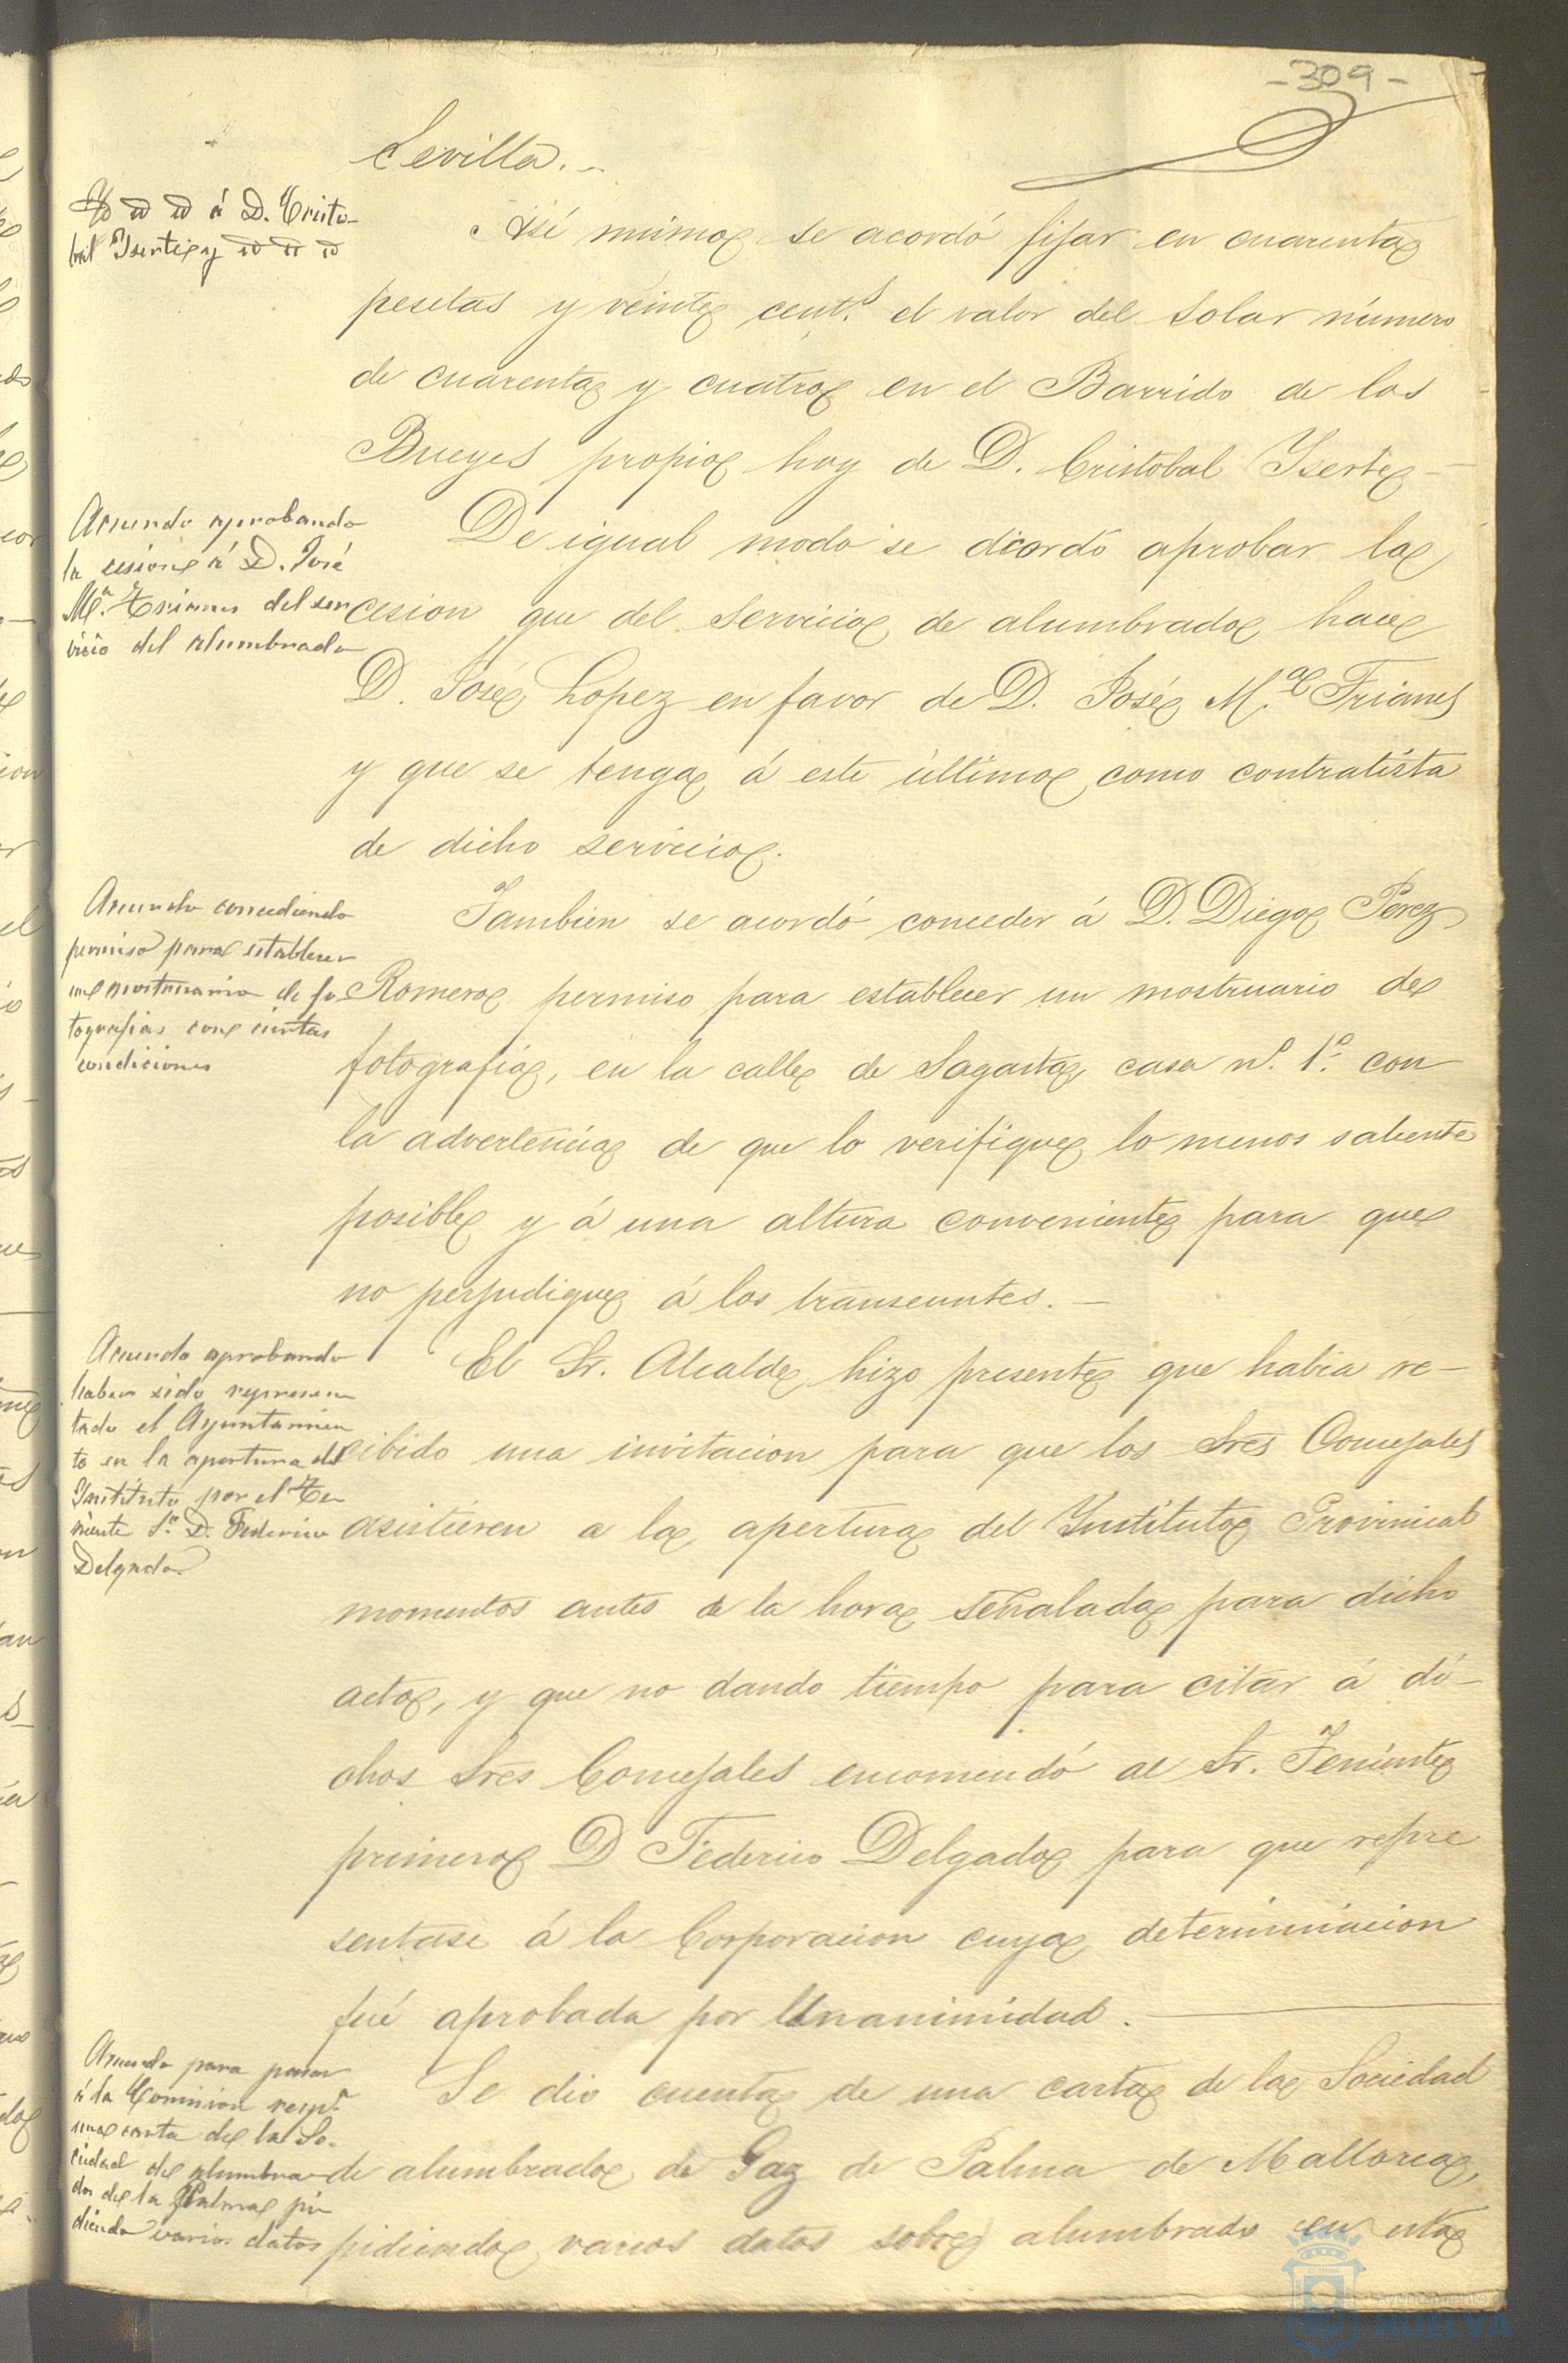 -309-
Sevilla.-
Yd id id á D. Cristo-
bal Yserte y id id id
Asi mismo se acordó fijar en cuarenta
pesetas y veinte cent.s el valor del solar número
de cuarenta y cuatro en el Barrido de los
Bueyes propio hoy de D. Cristobal Yserte-
Acuerdo aprobando
la cesion á D. José
M.a Trianes del ser
vicio del alumbrado
De igual modo se acordó aprobar la
cesion que del servicio de alumbrado hace
D. José Lopez en favor de D. José M.a Trianes
y que se tenga á este último como contratista
de dicho servicio.
Acuerdo concediendo
permiso para establecer
un mostruario de fo-
tografias con ciertas
condiciones
Tambien se acordó conceder á D. Diego Perez
Romero permiso para establecer un mostruario de
fotografia, en la calle de Sagasta casa n.º 1.º con
la advertencia de que lo verifique lo menos saliente
posible y á una altura conveniente para que
no perjudique á los transeuntes.-
Acuerdo aprobando
haber sido represen
tado el Ayuntamien
to en la apertura del
Instituto por el Te
niente 1.º D. Federico
Delgado.
El Sr. Alcalde hizo presente que habia re-
cibido una invitacion para que los Sres Concejales
asistieren a la apertura del Ynstituto Provincial
momentos antes de la hora señalada para dicho
acto, y que no dando tiempo para citar á di-
chos Sres Concejales encomendó al Sr. Teniente
primero D Federico Delgado para que repre
sentase á la Corporacion cuya determinacion
fué aprobada por Unanimidad.
Acuerdo para pasar
á la Comision resp.a
una carta de la So-
ciedad de alumbra-
do de la Palma pi
diendo varios datos
Se dio cuenta de una carta de la Sociedad
de alumbrado de Gaz de Palma de Mallorca,
pidiendo varios datos sobre alumbrado en esta
Ayuntamiento de
HUELVA